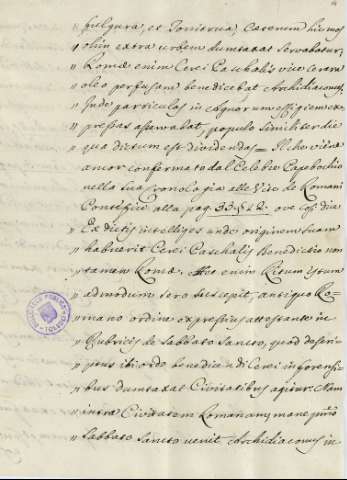 „ fulgura, et Tonitrua, Caeterum hic mos
„ olim extra urbem dumtaxat servabatur,
„ Romæ enim Cerei Paschalis vice ceram
„ oleo perfusam benedicebat Archidiaconus
„ Inde particulas in Agnorum effigiem ex=
„ pressas asservabat, populo similiter die
„ qua dictum est dividendas = Il che viene
ancor confermato dal Celebre Papebrochio
nella sua Cronologia alle Vite de Romani
Pontefici alla pag. 33. § 22. ove così dice
„ Ex dictis intelliges unde originem suam
„ habuerit Cerei Paschalis Benedictio non
„ tamen Romæ. enim Ritum istum
„ admodum sero suscepit, antiquo Ro=
„ mano ordine expressius attestante in
„ Rubricis de Sabbato Sancto, quod descri=
„ ptus ibi ordo benedicendi Cerei in forensi=
„ bus dumtaxat Civitatibus agitur. Nam
„ intra Civitatem Romanam, mane primo
„ Sabbato Sancto venit Archidiaconus in